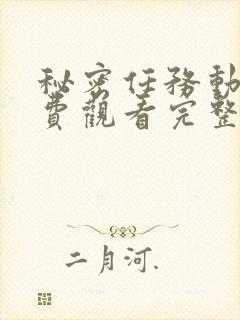 秘密任務動
費觀看完整
二月河.